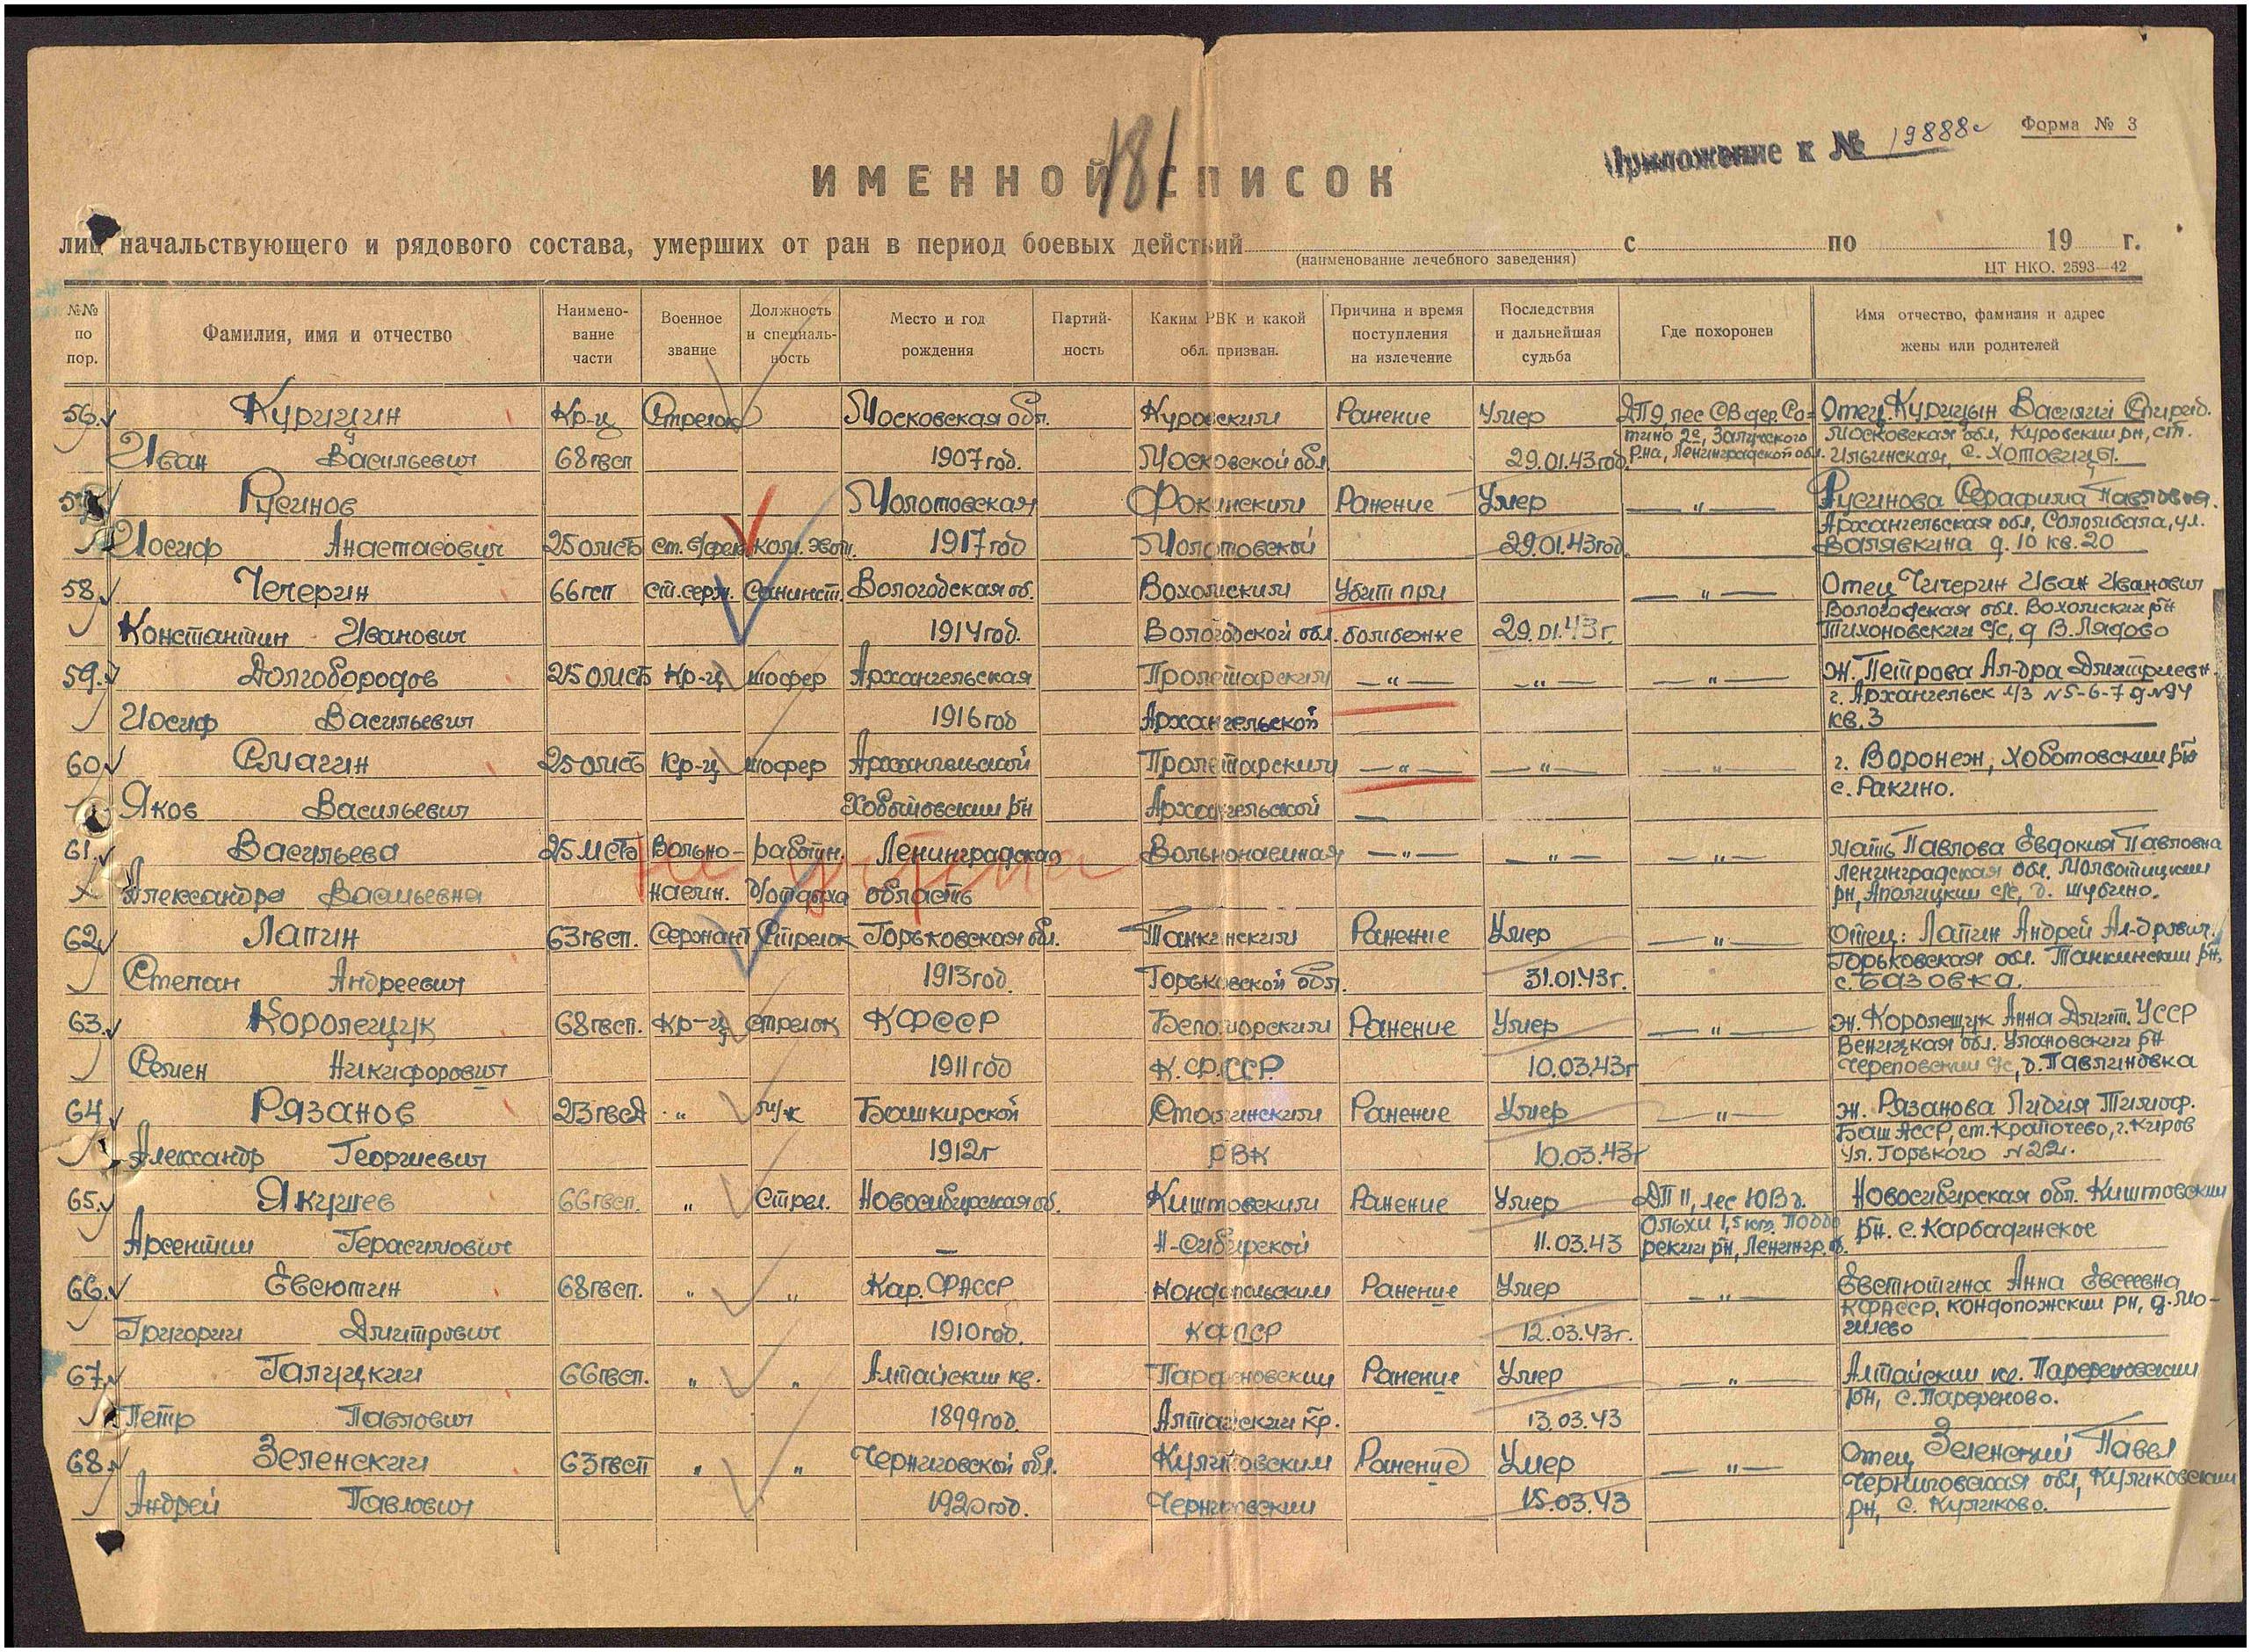 Форма № 3
Приложение к № 19888с
181
ИМЕННОЙ СПИСОК
лиц начальствующего и рядового состава, умерших от ран в период боевых действий с по 19 г.
(наименование лечебного заведения)
ЦТ НКО. 2593—42
№№ по пор. Фамилия, имя и отчество Наимено-вание части Военное звание Должность и специаль-ность Место и год рождения Партий-ность Каким РВК и какой обл. призван. Причина и время поступления на излечение Последствия и дальнейшая судьба Где похоронен Имя отчество, фамилия и адрес жены или родителей
56. Курицин Кр-ц Стрелок Московская обл. Куровским Ранение Умер ДП9, лес СВ дер. Ро- Отец Курицын Василий Спирид.
тино 2с, Залучского Московская обл, Куровский рн, ст.
Иван Васильевич 68гвсп 1907 год. Московской обл. 29.01.43 год. р-на, Ленинградской обл. Ильинская, с. Хотовицы.
57 Русинов Молотовская Фокинским Ранение Умер —"— Русинова Серафима Павловна.
Архангельская обл, Соломбала, ул.
Иосиф Анастасович 25 омсб ком. 1917 год Молотовской 29.01.43 год Валявкина д. 10 кв. 20
58. Чечерин 66 гсп ст.серж. Санинст. Вологодская об. Вохомским Убит при —"— Отец Чичерин Иван Иванович
Вологодская обл. Вохомский рн
Константин Иванович 1914 год. Вологодской обл. бомбежке 29.01.43 г. Тихоновский с/с, д В. Лядово
59. Долгобородов 25 омсб Кр-ц шофер Архангельская Пролетарским —"— —"— —"— ж. Петрова Ал-дра Дмитриевн.
г. Архангельск л/з № 5-6-7 д №94
Иосиф Васильевич 1916 год Архангельской кв. 3
60 Смагин 25 омсб Кр-ц шофер Архангельской Пролетарским —"— —"— —"— г. Воронеж, Хоботовский рн
Яков Васильевич Хоботовский рн Архангельской с. Ракино.
61. Васильева 25 мсб Вольно- работн. Ленинградская Вольнонаемная —"— —"— —"— мать Павлова Евдокия Павловна
не учтена
Ленинградская обл. Молвотицкий
Александра Васильевна наемн. д/отдыха область рн, Аполицкий с/с, д. Шубино.
62 Лапин 63гвсп. Сержант Стрелок Горьковская обл. Танкинским Ранение Умер —"— Отец: Лапин Андрей Ал-дрович.
Горьковская обл. Танкинский рн,
Степан Андреевич 1913 год. Горьковской обл. 31.01.43 г. с. Базовка.
63. Королещук 68гвсп. Кр-ц Стрелок КФССР Беломорским Ранение Умер —"— ж. Королещук Анна Дмит. УССР
Веницкая обл. Улановский рн
Семен Никифорович 1911 год К.Ф.ССР 10.03.43 г Череповский с/с, д. Павлиновка
64 Рязанов 23гвсд " п/к Башкирской Сталинским Ранение Умер —"— ж. Рязанова Лидия Тимоф.
Баш АССР, ст. Крапочево, г. Киров
Александр Георгиевич 1912 г РВК 10.03.43 г ул. Горького № 22.
65. Якушев 66гвсп. " Стрел. Новосибирская об. Киштовским Ранение Умер ДП 11, лес ЮВ д. Новосибирская обл. Киштовский
Ольхи 1,5 км. Поддо
Арсентий Герасимович — Н-Сибирской 11.03.43 рский рн, Ленингр. о. рн. с. Карбадинское
66. Евсютин 68гвсп. " " Кар. ФАССР Кондопольским Ранение Умер —"— Евстютина Анна Евсеевна
КФАССР, Кондопожский рн, д. Мо-
Григорий Дмитрович 1910 год. КФССР 12.03.43 г. гилево
67. Галицкий 66гвсп. " " Алтайский кр. Парфеновским Ранение Умер —"— Алтайский кр. Парфеновский
Петр Павлович 1899 год. Алтайский кр. 13.03.43 рн, с. Парфеново.
68. Зеленский 63гвсп " " Черниговской обл. Куликовским Ранение Умер —"— Отец Зеленский Павел
Черниговская обл, Куликовский
Андрей Павлович 1920 год. Черниговский 15.03.43 рн, с. Куликово.